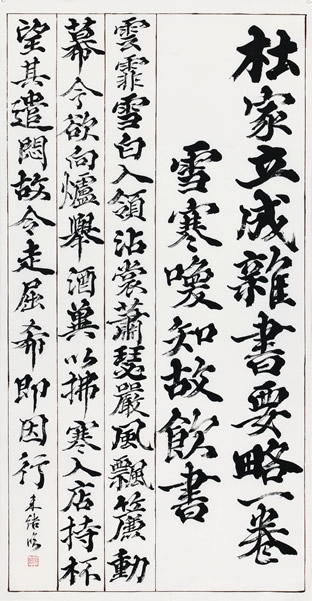 杜家立成雜書要略一卷
雪寒喚知故飲書
雲霏雪白入領沾裳蕭瑟嚴風飄簾動
幕今欲向爐舉酒冀以拂寒入店持杯
望其遣悶故令走屈希即因行
臨